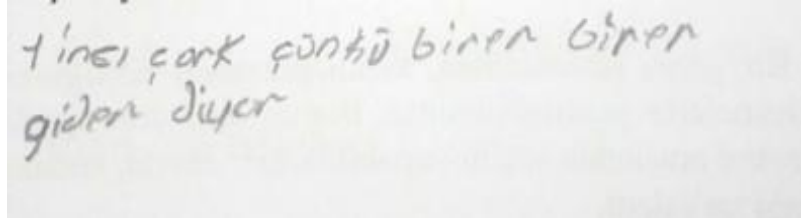 1'incı çark çünkü birer birer
gider diyor